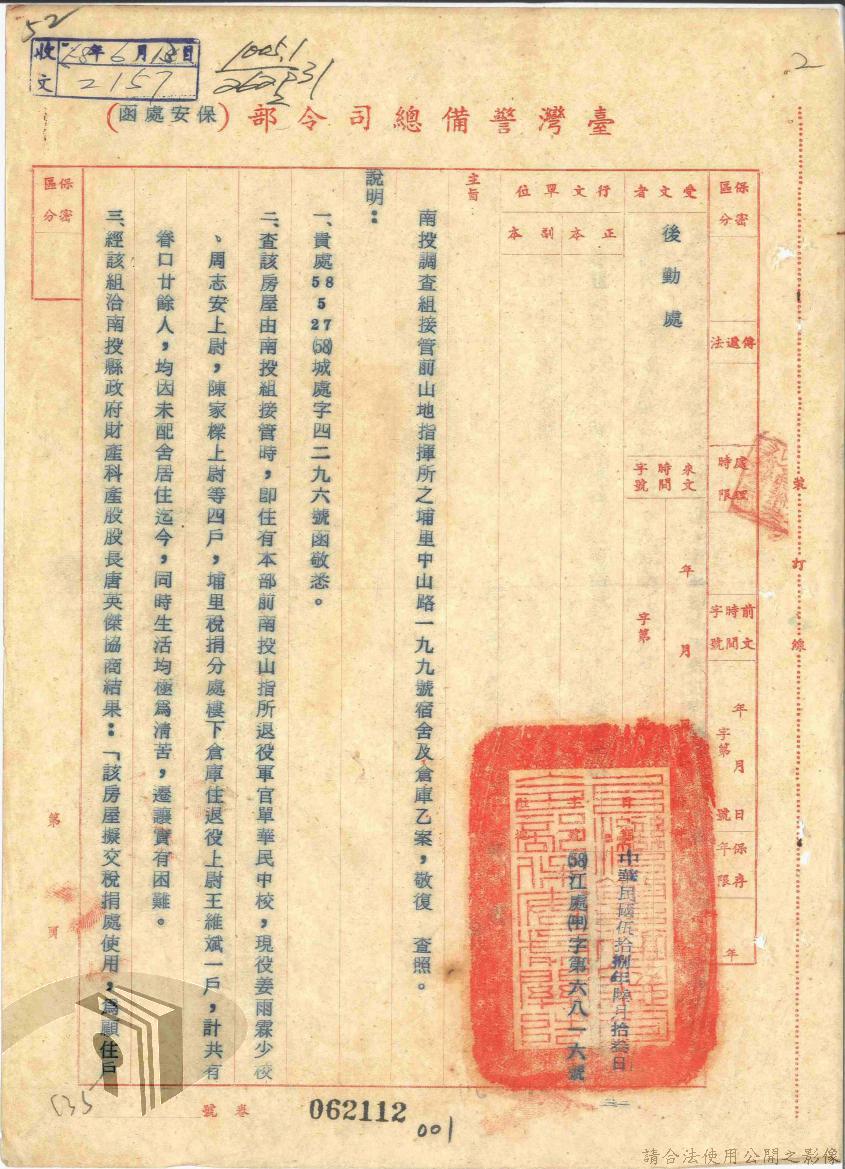 52
收文
58年6月18日
2157
1005.1
2
臺灣警備總司令部（保安處函）
保密區分
傳遞法
處理時限
前文時間字號
年 月 日
字第 號
保存年限
年
受文者
後勤處
來文時間字號
年 月
字第
行文單位
正本
副本
中華民國伍拾捌年陸月拾叁日
(58)江處(甲)字第六八一六號
主旨
南投調查組接管前山地指揮所之埔里中山路一九九號宿舍及倉庫乙案，敬復　查照。
說明：
一、貴處58 5 27(58)城處字四二九六號函敬悉。
二、查該房屋由南投組接管時，即住有本部前南投山指所退役軍官單華民中校，現役姜雨霖少校
、周志安上尉，陳家樑上尉等四戶，埔里稅捐分處樓下倉庫住退役上尉王維斌一戶，計共有
眷口廿餘人，均因未配舍居住迄今，同時生活均極為清苦，遷讓實有困難。
三、經該組洽南投縣政府財產科產股股長唐英傑協商結果：「該房屋擬交稅捐處使用，為顧住戶
保密區分
第 頁
裝 訂 線
卷號
062112
001
135
請合法使用公開之影像